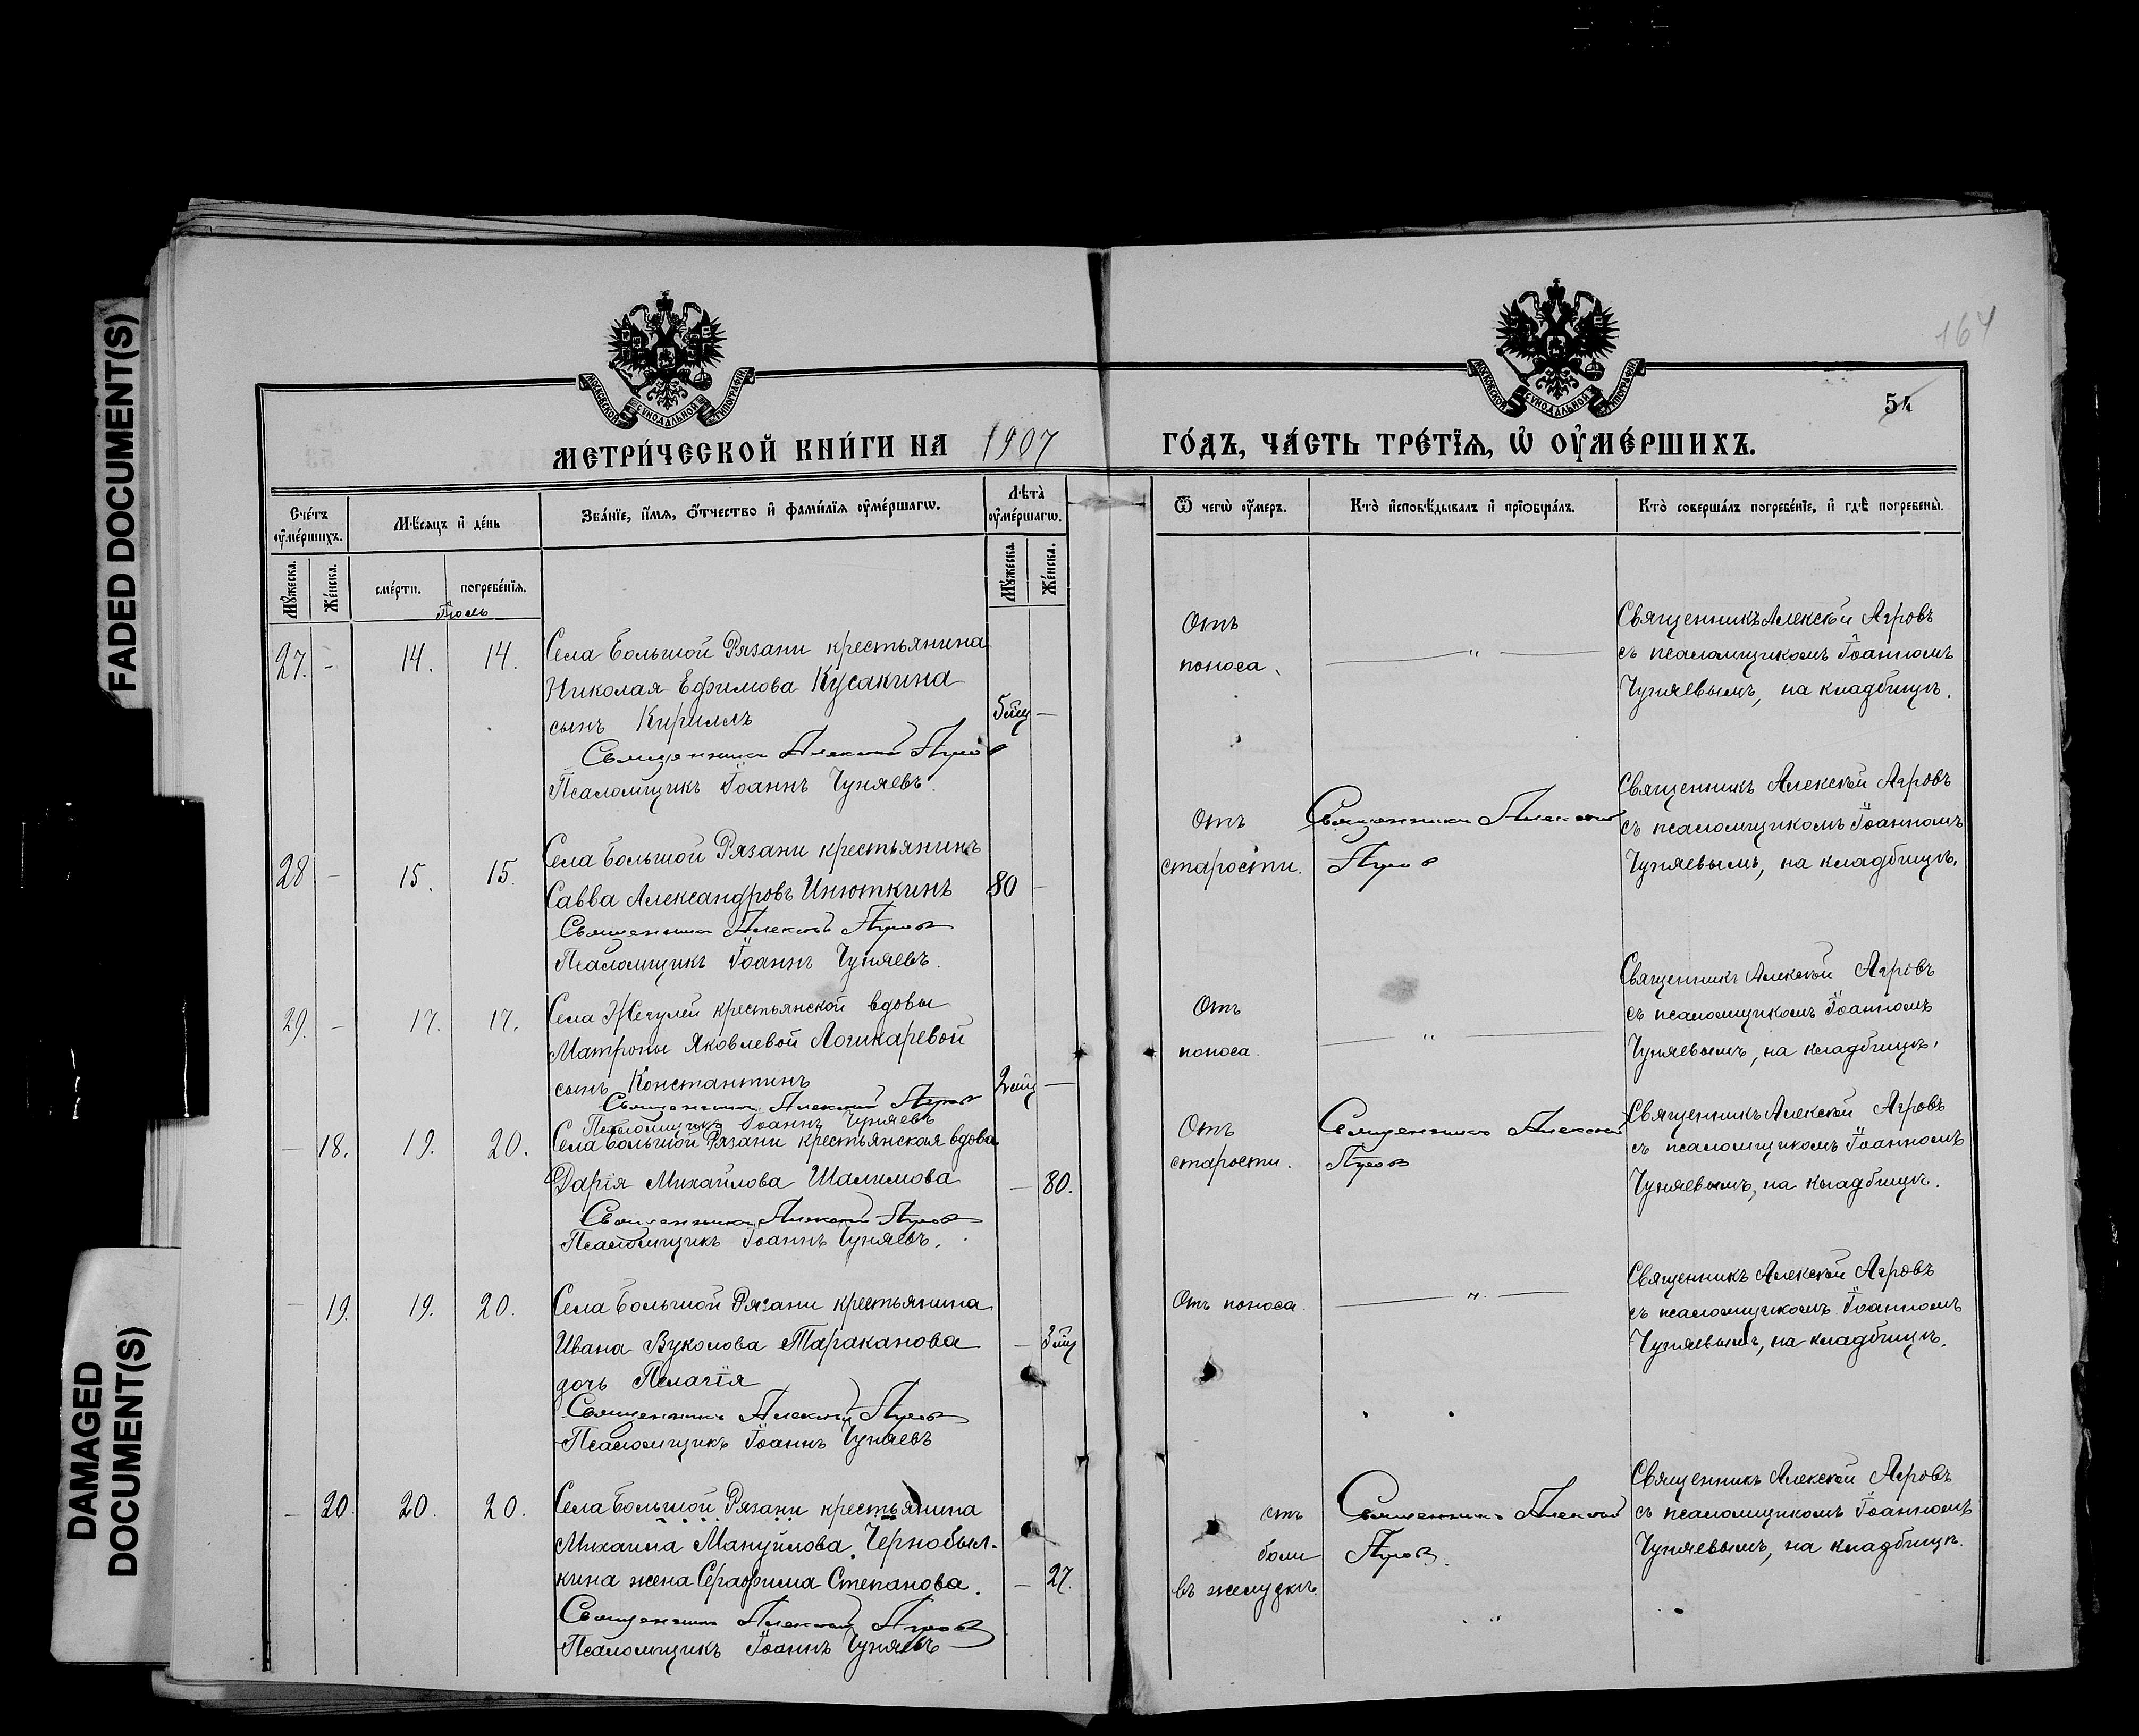 FADED DOCUMENT(S)
DAMAGED
DOCUMENT(S)
164
54
МОСКОВСКОЙ СѴНОДАЛЬНОЙ ТИПОГРАФІИ
МОСКОВСКОЙ СѴНОДАЛЬНОЙ ТИПОГРАФІИ
МЕТРИ́ЧЕСКОЙ КНИ́ГИ НА 1907 ГО́ДЪ, ЧА́СТЬ ТРЕ́ТЇЯ, Ѡ҆ ОУ҆МЕ́РШИХЪ.
Сче́тъ оу҆ме́ршихъ.
Мѣ́сяцъ и҆ де́нь
Зва́нїе, и҆́мя, ѻ҆́тчество и҆ фами́лїя оу҆ме́ршагѡ.
Лѣта̀ оу҆ме́ршагѡ.
Ѿ чегѡ̀ оу҆́меръ.
Кто̀ и҆сповѣ́дывалъ и҆ прїѻбща́лъ.
Кто̀ соверша́лъ погребе́нїе, и҆ гдѣ̀ погребены̀.
Му́жеска.
Же́нска.
сме́рти.
погребе́нїя.
Му́жеска.
Же́нска.
Іюль
27. - 14. 14.
Села Большой Рязани крестьянина
Николая Ефимова Кусакина
сынъ Кириллъ
5 мц —
Священникъ Алексѣй Агровъ
Псаломщикъ Іоаннъ Чуняевъ.
Отъ
поноса.
— " —
Священникъ Алексѣй Агровъ
съ псаломщикомъ Іоанномъ
Чуняевымъ, на кладбищѣ.
28 — 15. 15.
Села Большой Рязани крестьянинъ
Савва Александровъ Инюткинъ
80 —
Священникъ Алексѣй Агровъ
Псаломщикъ Іоаннъ Чуняевъ.
Отъ
старости.
Священникъ Алексѣй
Агровъ
Священникъ Алексѣй Агровъ
съ псаломщикомъ Іоанномъ
Чуняевымъ, на кладбищѣ.
29. — 17. 17.
Села Жегулей крестьянской вдовы
Матроны Яковлевой Ложкаревой
сынъ Константинъ
2 мц —
Священникъ Алексѣй Агровъ
Псаломщикъ Іоаннъ Чуняевъ
Отъ
поноса.
— " —
Священникъ Алексѣй Агровъ
съ псаломщикомъ Іоанномъ
Чуняевымъ, на кладбищѣ.
— 18. 19. 20.
Села Большой Рязани крестьянская вдова
Дарія Михайлова Шалимова
— 80.
Священникъ Алексѣй Агровъ
Псаломщикъ Іоаннъ Чуняевъ.
Отъ
старости.
Священникъ Алексѣй
Агровъ
Священникъ Алексѣй Агровъ
съ псаломщикомъ Іоанномъ
Чуняевымъ, на кладбищѣ.
— 19. 19. 20.
Села Большой Рязани крестьянина
Ивана Вуколова Тараканова
— 3 мц
дочь Пелагія
Священникъ Алексѣй Агровъ
Псаломщикъ Іоаннъ Чуняевъ
Отъ поноса.
— " —
Священникъ Алексѣй Агровъ
съ псаломщикомъ Іоанномъ
Чуняевымъ, на кладбищѣ.
— 20. 20. 20.
Села Большой Рязани крестьянина
Михаила Мануйлова Чернобыл-
кина жена Серафима Степанова.
— 27.
Священникъ Алексѣй Агровъ
Псаломщикъ Іоаннъ Чуняевъ
отъ
боли
въ желудкѣ.
Священникъ Алексѣй
Агровъ.
Священникъ Алексѣй Агровъ
съ псаломщикомъ Іоанномъ
Чуняевымъ, на кладбищѣ.